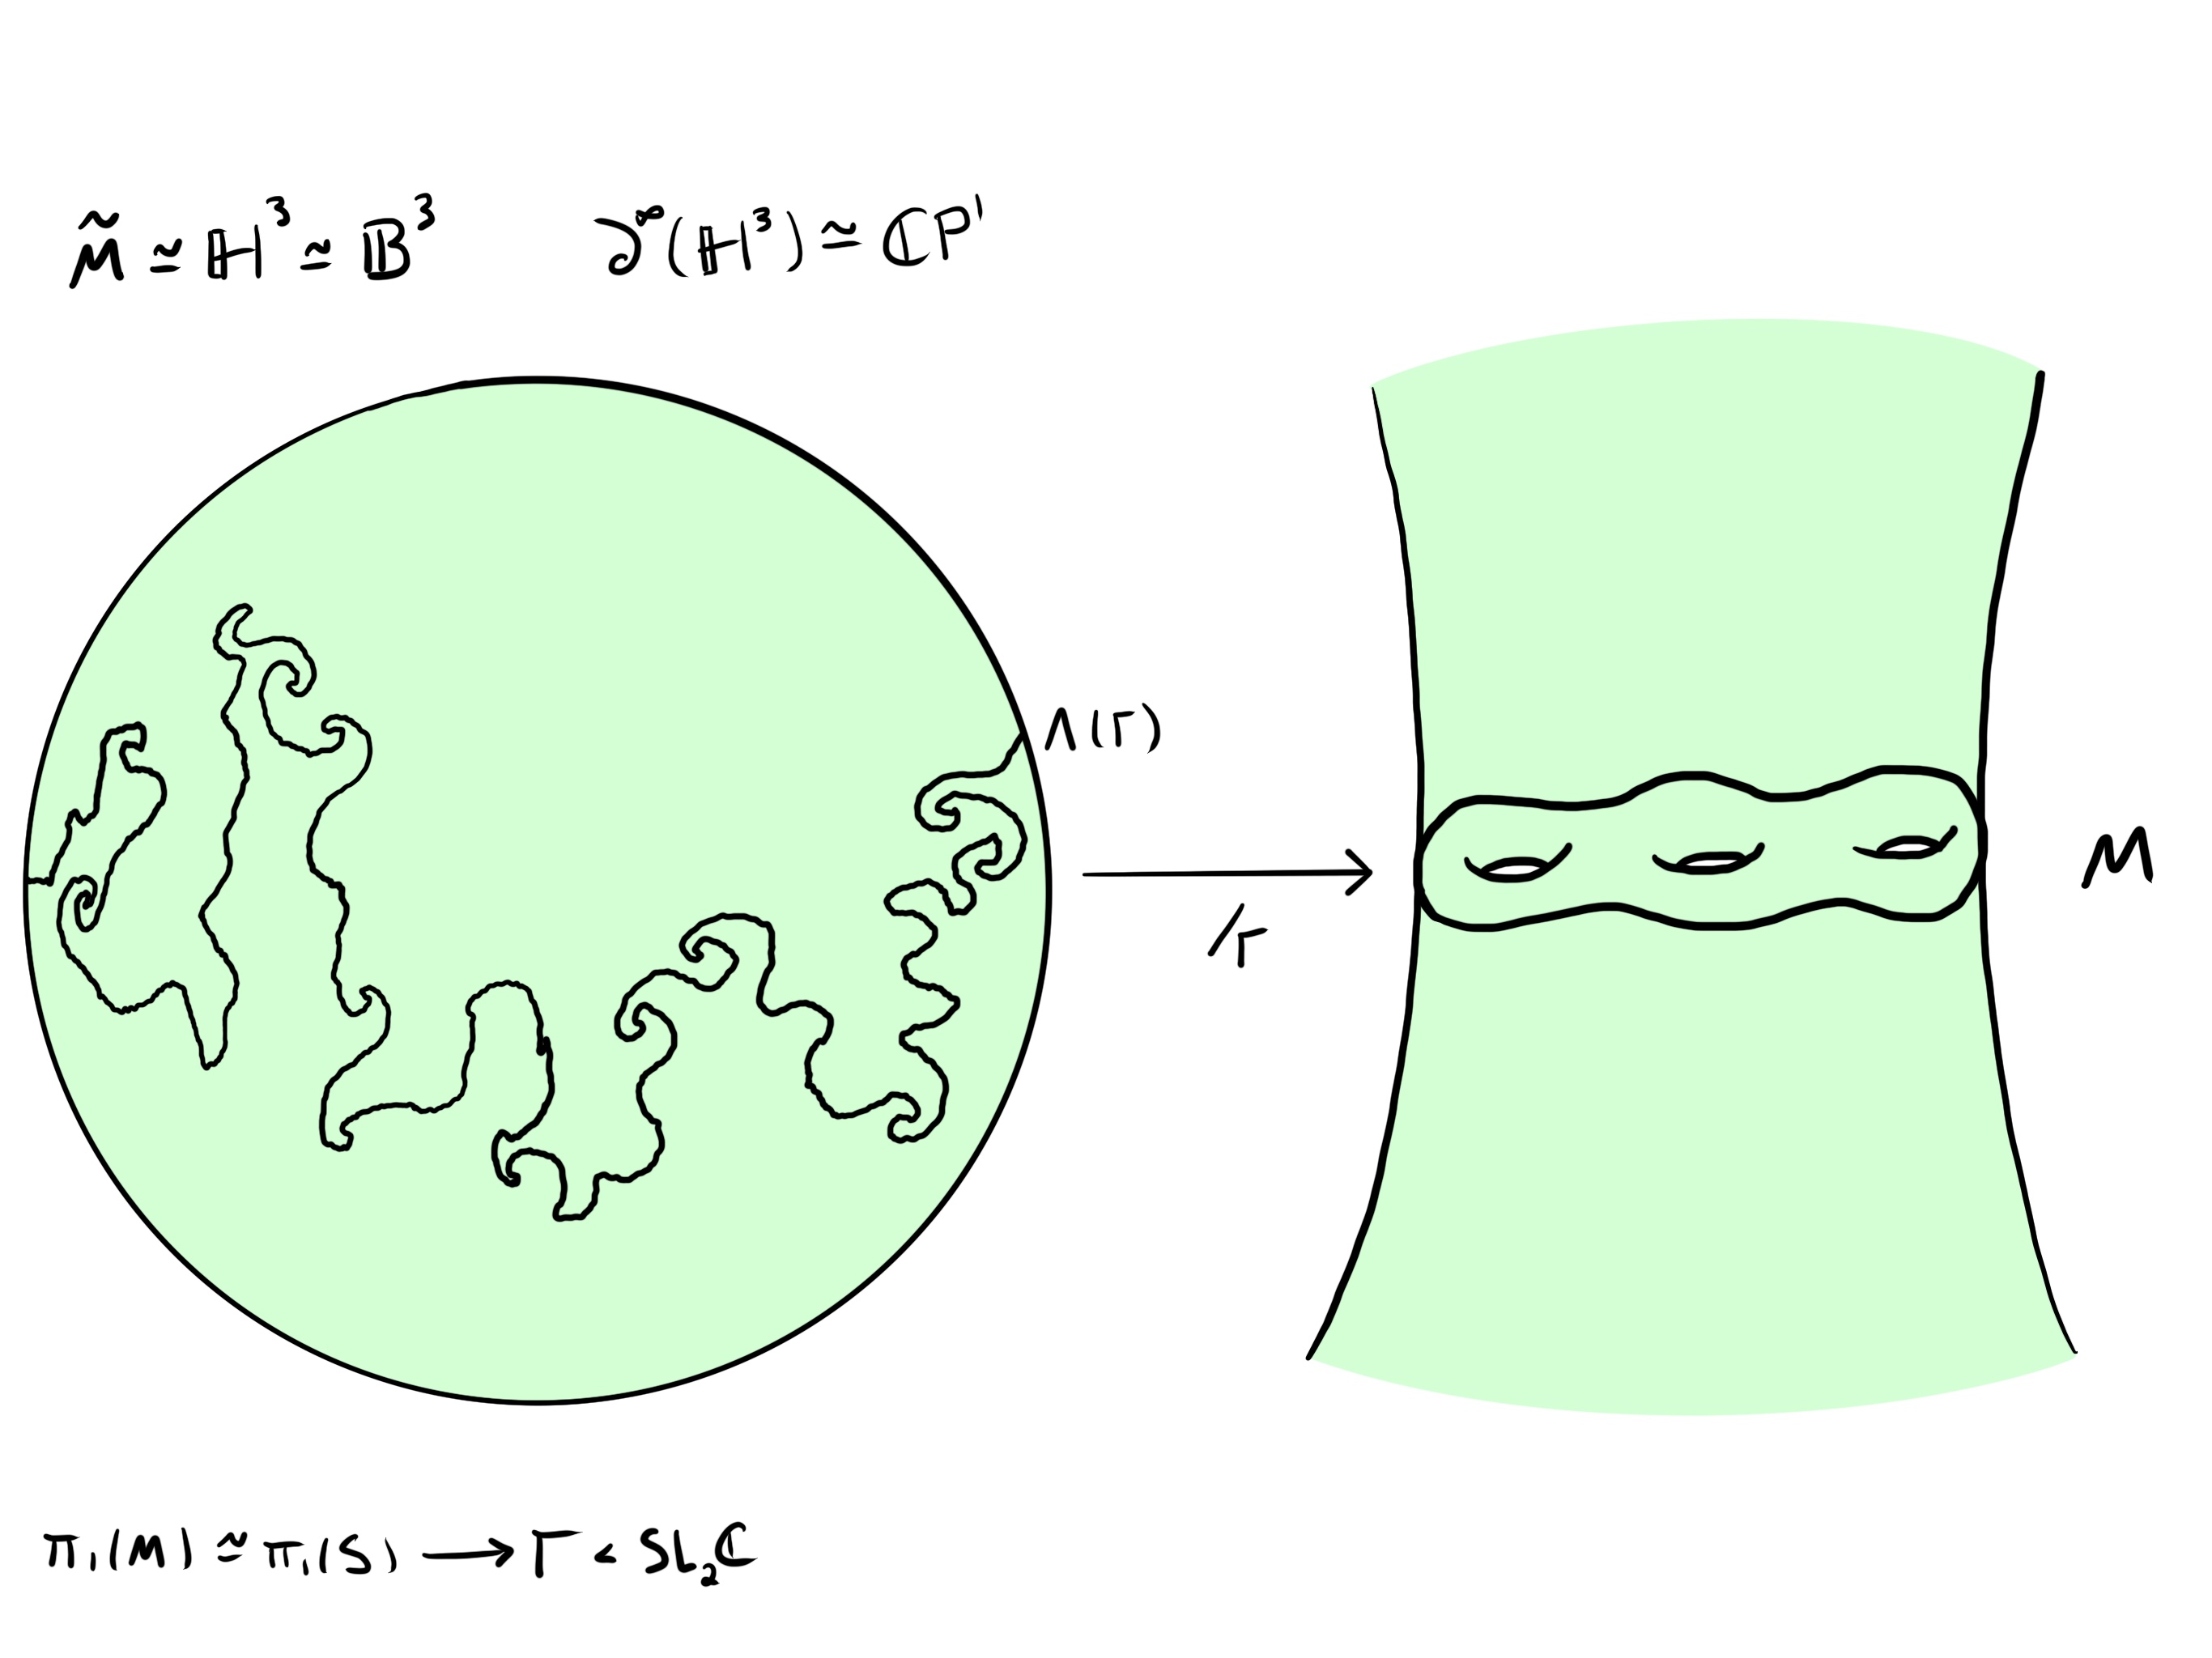 M̃ ≃ ℍ³ ≃ 𝔹³
∂^∞(ℍ³) ≃ ℂP¹
Λ(Γ)
/Γ
M
π₁(M) ≃ π₁(S) ⟶ Γ < SL₂ℂ